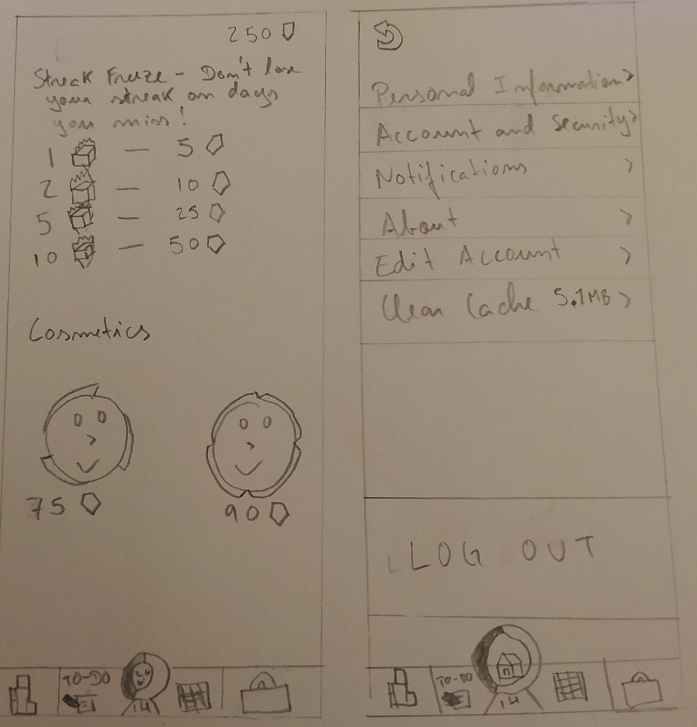 250
Streak Freeze - Don't lose
your streak on days
you miss!
1 — 5
2 — 10
5 — 25
10 — 50
Cosmetics
75
90
TO-DO
14
Personal Information >
Account and Security >
Notifications >
About >
Edit Account >
Clear Cache 5.1MB >
LOG OUT
TO-DO
14